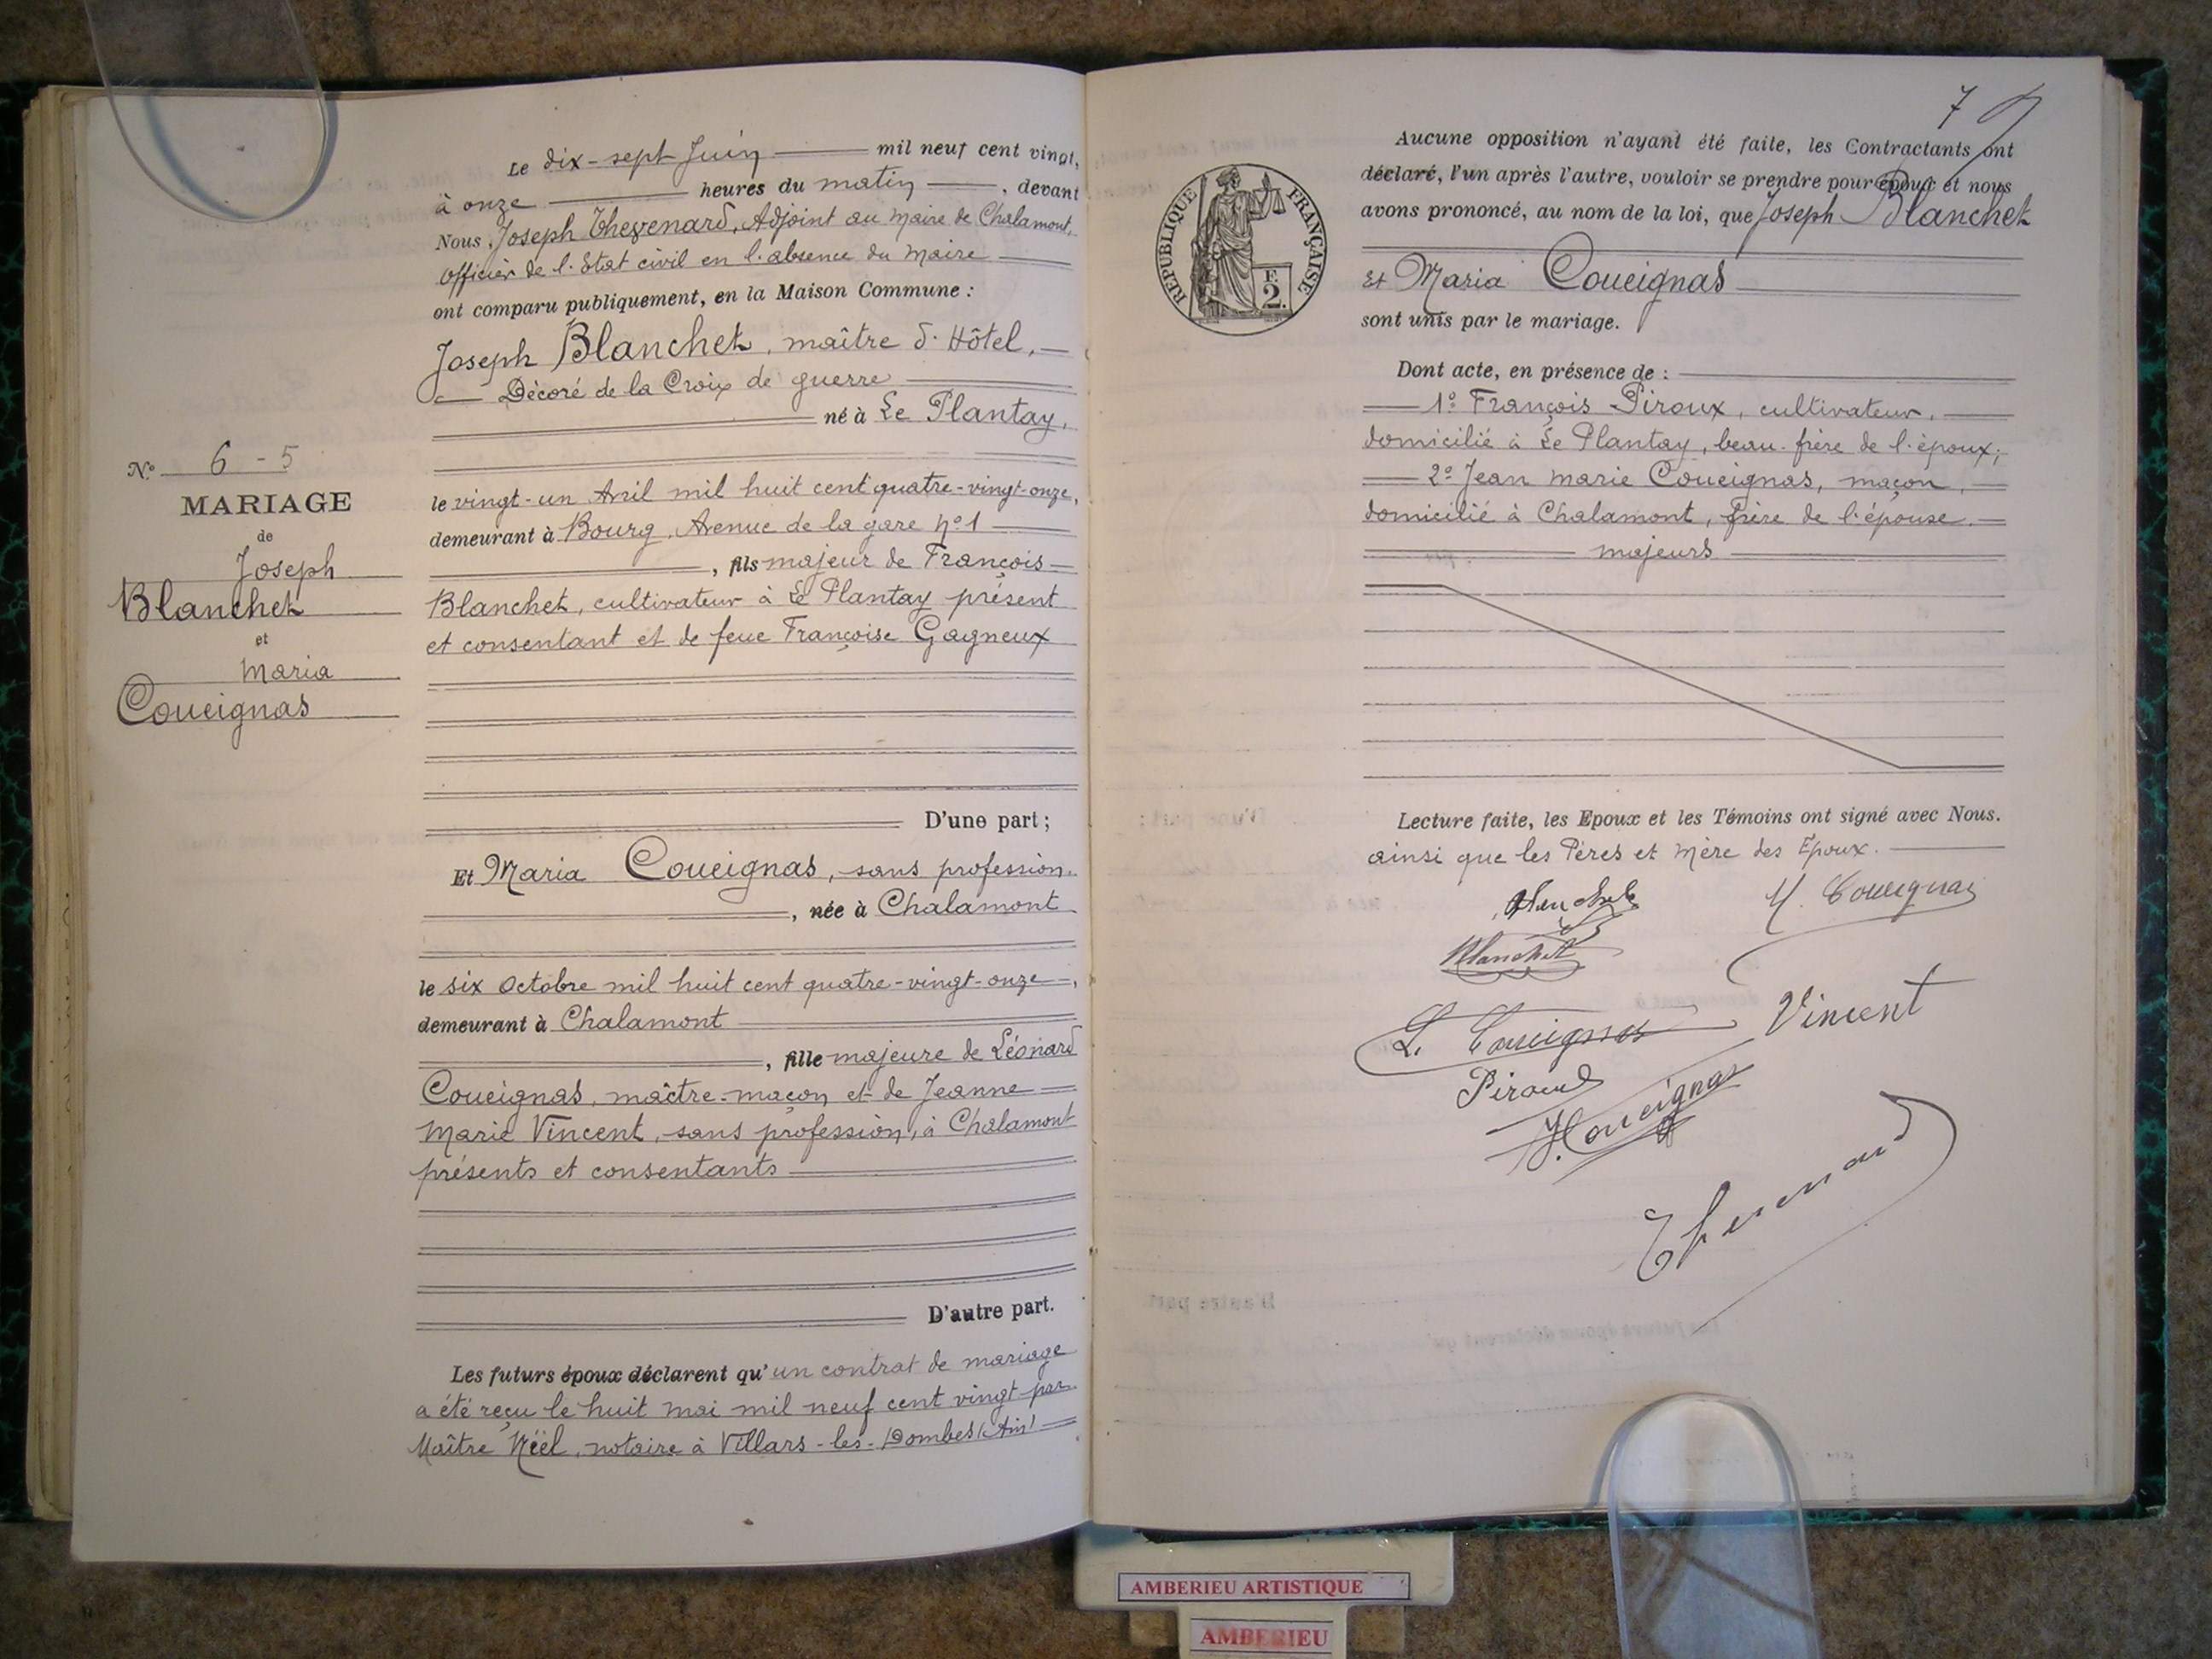 Le dix-sept Juin mil neuf cent vingt,
à onze heures du matin, devant
Nous, Joseph Thevenard, Adjoint au Maire de Chalamont,
officier de l'Etat civil en l'absence du Maire
ont comparu publiquement, en la Maison Commune :
Joseph Blanchet, maître d'Hôtel,
Décoré de la Croix de guerre
né à Le Plantay,
le vingt-un Avril mil huit cent quatre-vingt-onze,
demeurant à Bourg, Avenue de la gare N°1
, fils majeur de François
Blanchet, cultivateur à Le Plantay présent
et consentant et de feue Françoise Gagneux
D'une part ;
Et Maria Coueignas, sans profession.
, née à Chalamont
le six Octobre mil huit cent quatre-vingt-onze,
demeurant à Chalamont
, fille majeure de Léonard
Coueignas, maître-maçon et de Jeanne
Marie Vincent, sans profession, à Chalamont
présents et consentants
D'autre part.
Les futurs époux déclarent qu'un contrat de mariage
a été reçu le huit mai mil neuf cent vingt par
Maître Néel, notaire à Villars-les-Dombes (Ain)
N° 6 - 5
MARIAGE
de
Joseph
Blanchet
et
Maria
Coueignas
7
Aucune opposition n'ayant été faite, les Contractants ont
déclaré, l'un après l'autre, vouloir se prendre pour époux et nous
avons prononcé, au nom de la loi, que Joseph Blanchet
Et Maria Coueignas
sont unis par le mariage.
RÉPUBLIQUE FRANÇAISE
F.
2.
Dont acte, en présence de :
1° François Piroux, cultivateur,
domicilié à Le Plantay, beau-frère de l'époux ;
2° Jean Marie Coueignas, maçon,
domicilié à Chalamont, frère de l'épouse.
majeurs
Lecture faite, les Epoux et les Témoins ont signé avec Nous.
ainsi que les Pères et Mère des Epoux.
Blanchet
M. Coueignas
Blanchet
L. Coueignas
Vincent
Piroux
J. Coueignas
Thevenard
AMBERIEU ARTISTIQUE
AMBERIEU